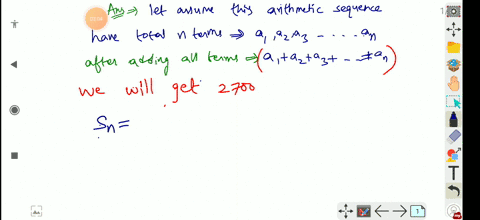 Ans ⇒ let assume this arithmetic sequence
have total n terms ⇒ a₁, a₂ a₃ - - - - - aₙ
after adding all terms ⇒ (a₁ + a₂ + a₃ + - - - + aₙ)
we will get 2700
Sₙ =